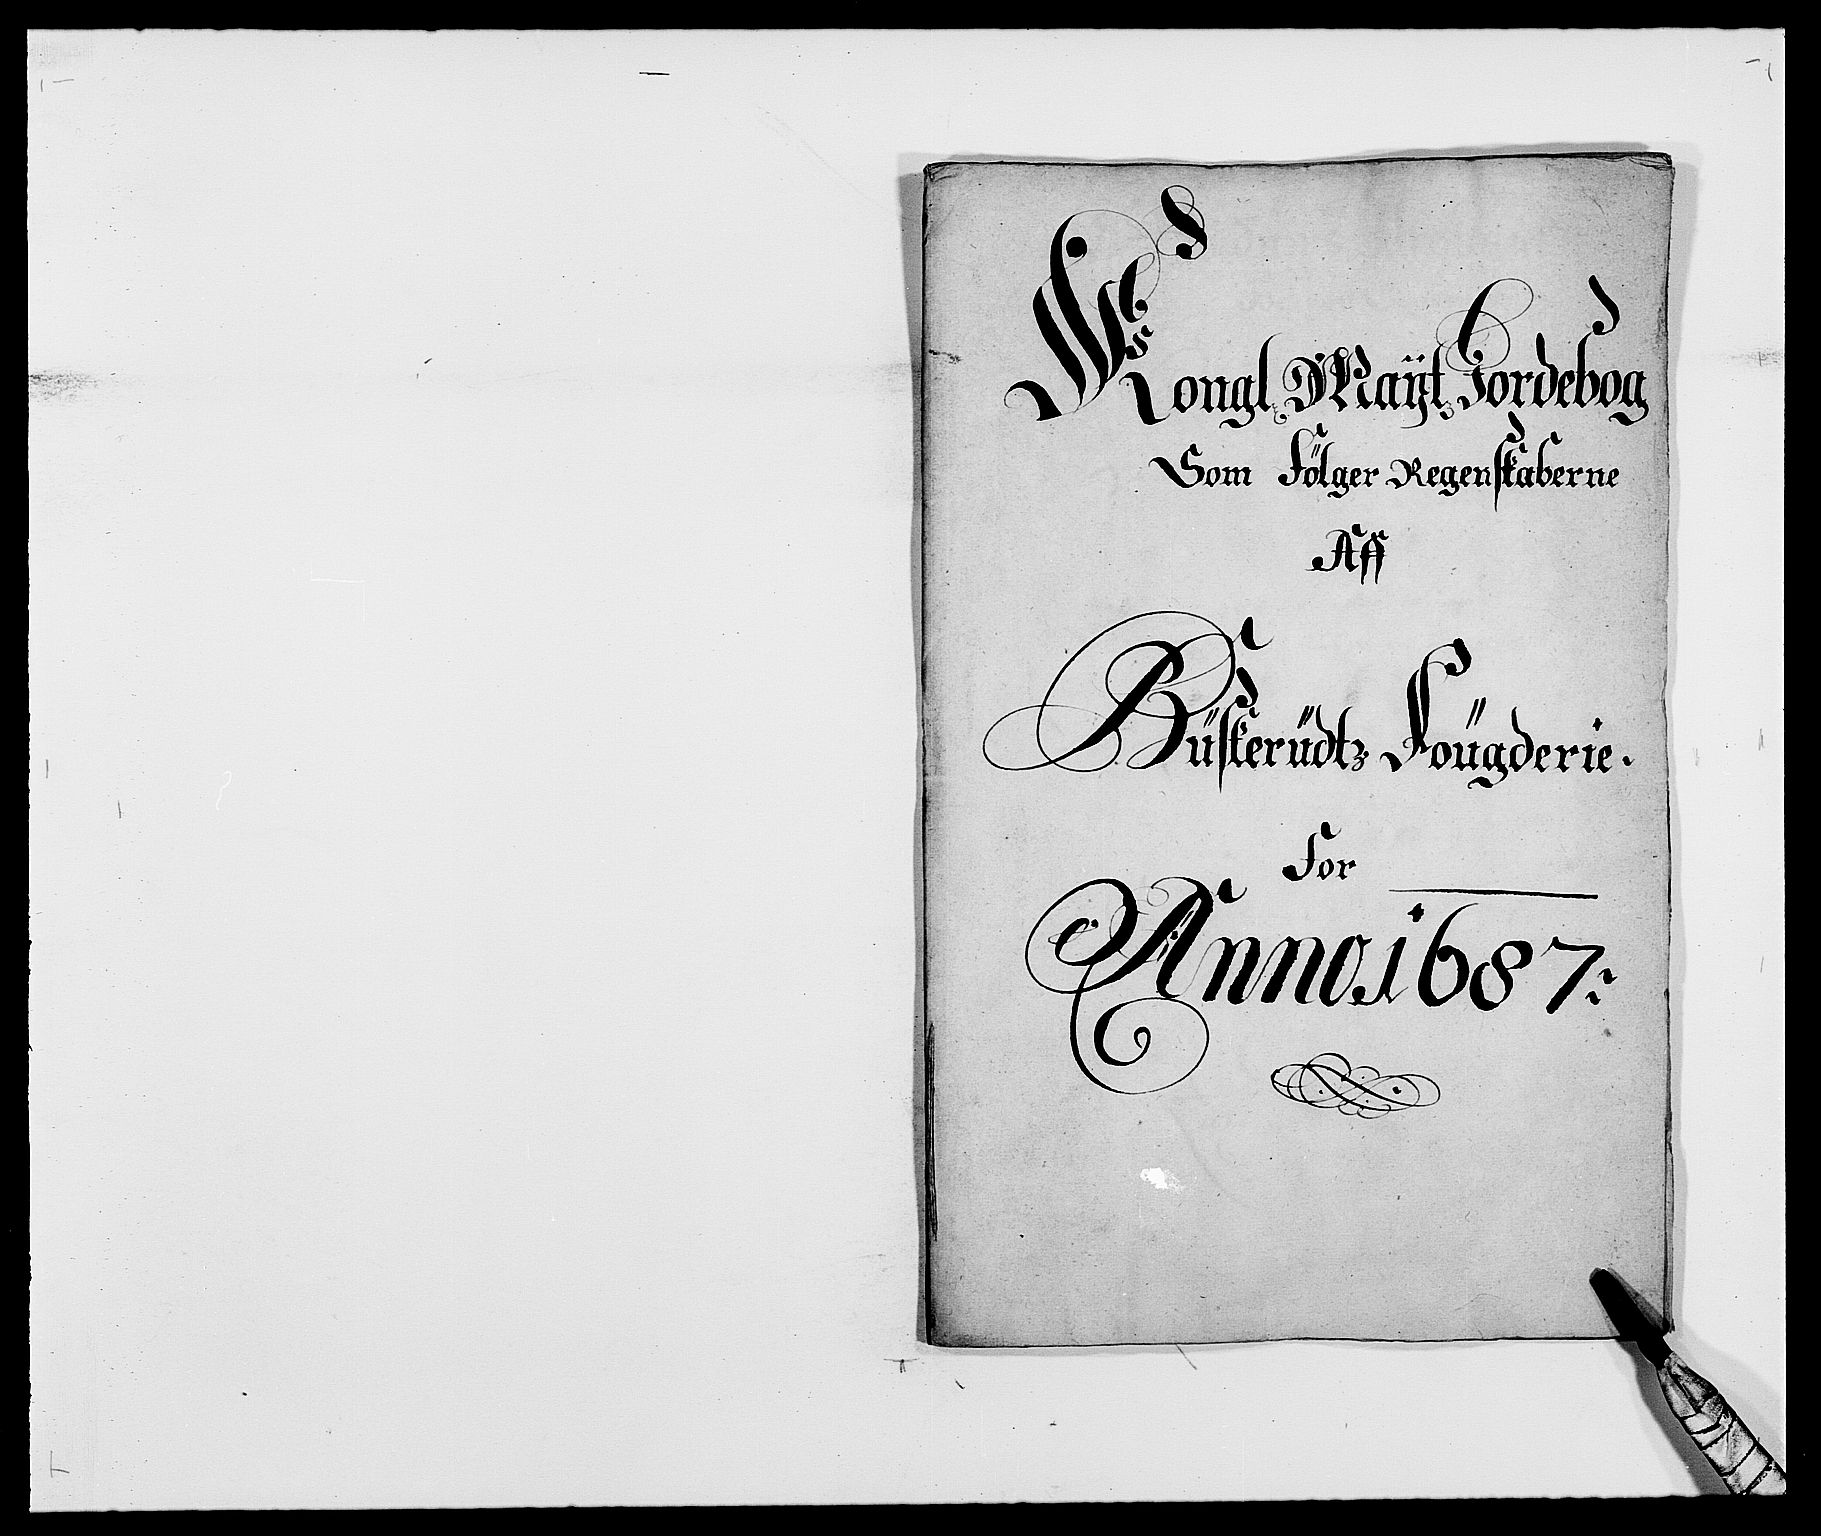 Kongl Maÿt Jordebog
Som Fölger Regenskaberne
Aff
Büskerüdtz Foügderie.
For
Anno 1687: